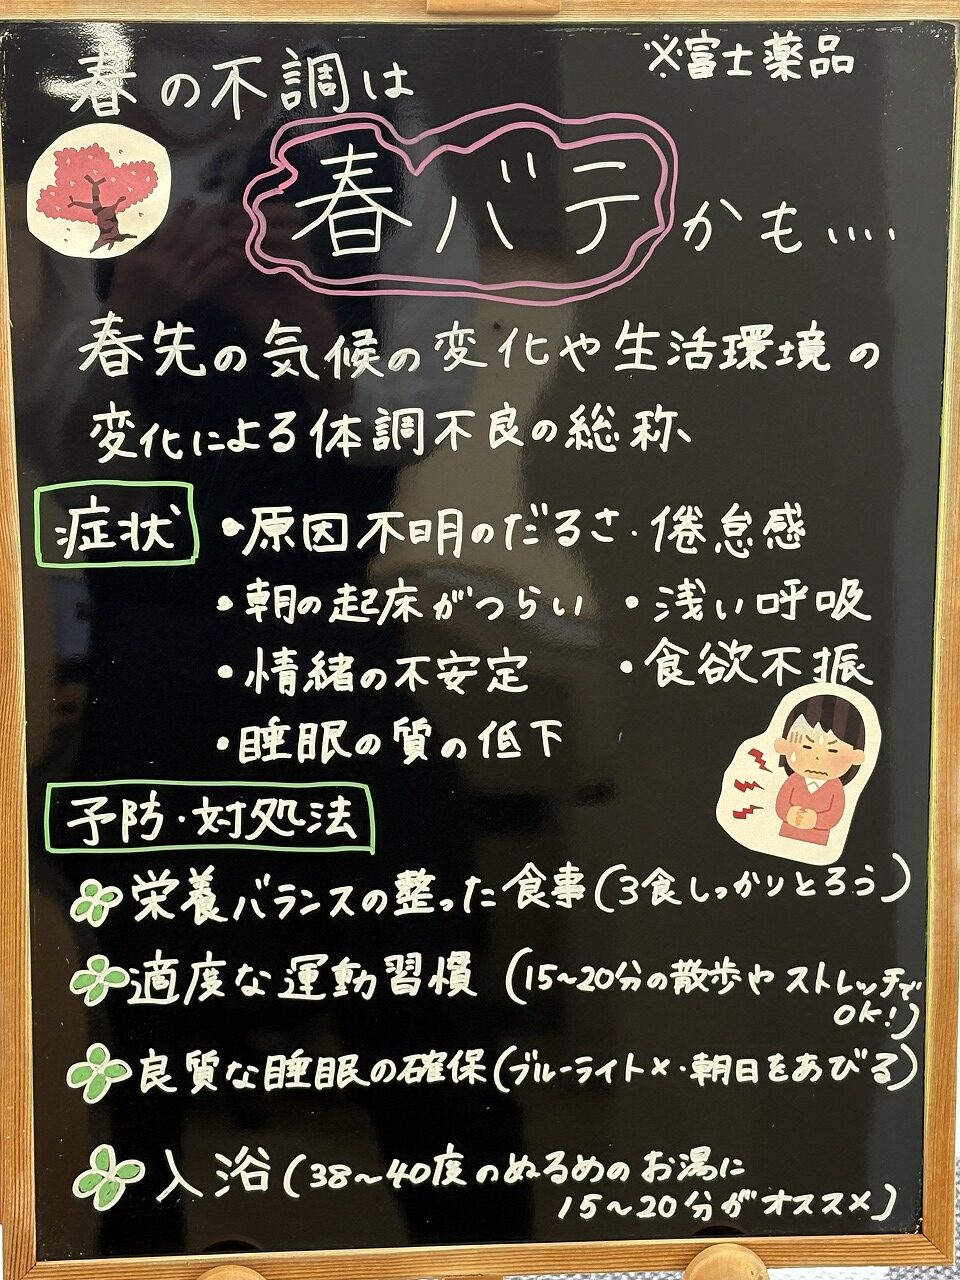 ※富士薬品
春の不調は
春バテかも....
春先の気候の変化や生活環境の
変化による体調不良の総称、
症状
・原因不明のだるさ・倦怠感
・朝の起床がつらい ・浅い呼吸
・情緒の不安定 ・食欲不振
・睡眠の質の低下
予防・対処法
栄養バランスの整った食事(3食しっかりとろう)
適度な運動習慣 (15~20分の散歩やストレッチで
OK!)
良質な睡眠の確保(ブルーライト×・朝日をあびる)
入浴(38~40度のぬるめのお湯に
15~20分がオススメ)